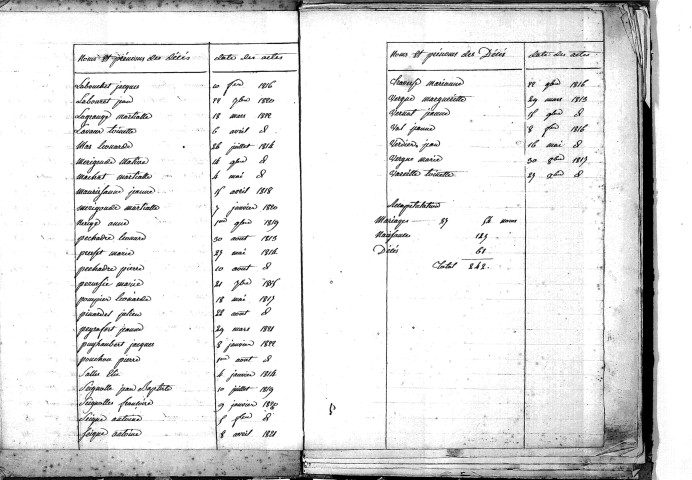 Noms et prénoms des Décés date des actes
Labouchet jacques 10 fev 1816
Labouret jean 22 9bre 1820
Lagrange martialle 18 mars 1822
Lavaux toinette 6 avril d
Mas leonarde 26 juillet 1814
Merigoude Matine 14 9bre d
machat martialle 4 mai d
jeanne 15 avril 1818
merigoude martialle 7 janvier 1820
anne 1er 9bre 1819
pechadre leonard 30 aout 1813
marie 27 mai 1814
pechadre pierre 10 aout d
marie 21 9bre 1815
pompier leonarde 18 mai 1817
pinardel julien 22 aout d
peyrafort jeanne 29 mars 1821
puyhaubert jacques 8 janvier 1822
pouchou pierre 1er aout d
Salles Elie 4 janvier 1814
Seignolle jean Baptiste 10 juillet 1819
Seignolles françoise 9 janvier 1820
Seigue antoine 5 d
Seigue antoine 8 avril 1821
Noms et prénoms des Décés date des actes
marianne 22 9bre 1816
Vergne marguerite 29 mars 1813
jeanne 15 9bre d
Val jeanne 8 1816
Verdier jean 16 mai d
Vergne marie 30 8bre 1817
toinette 27 d
Recapitulation
Mariages 27 54 noms
Naissances 127
Décés 61
Total 242